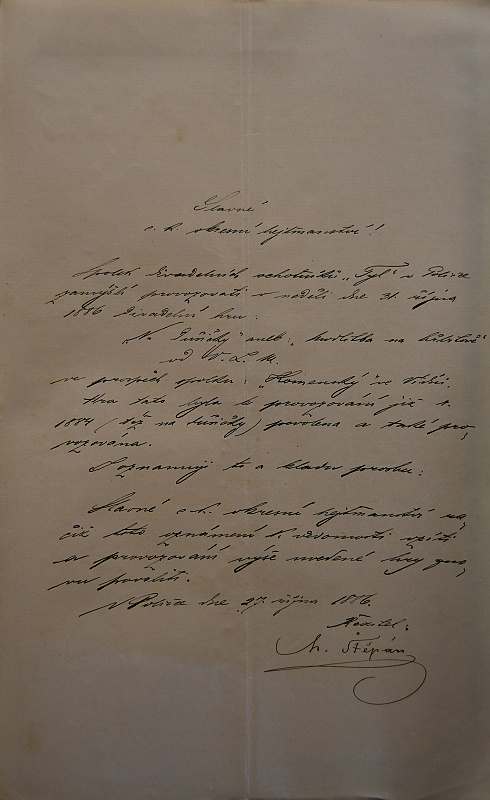 Slavné
c. k. okresní hejtmanství!
Spolek divadelních ochotníků „Tyl" v Polici
zamýšlí provozovati v neděli dne 31 října
1886 divadelní hru:
„Na Dušičky" aneb: modlitba na hřbitově
od V. L. M.
ve prospěch spolku: „Komenský" ve Vídni.
Hra tato byla k provozování již r.
1884 (též na dušičky) povolena a také pro-
vozována.
Oznamuji to a kladu prosbu:
Slavné c. k. okresní hejtmanství ra-
čiž toto oznámení k vědomosti vzíti
a provozování výše uvedené hry zno-
vu povoliti.
V Polici dne 27. října 1886.
Ředitel:
Štěpán